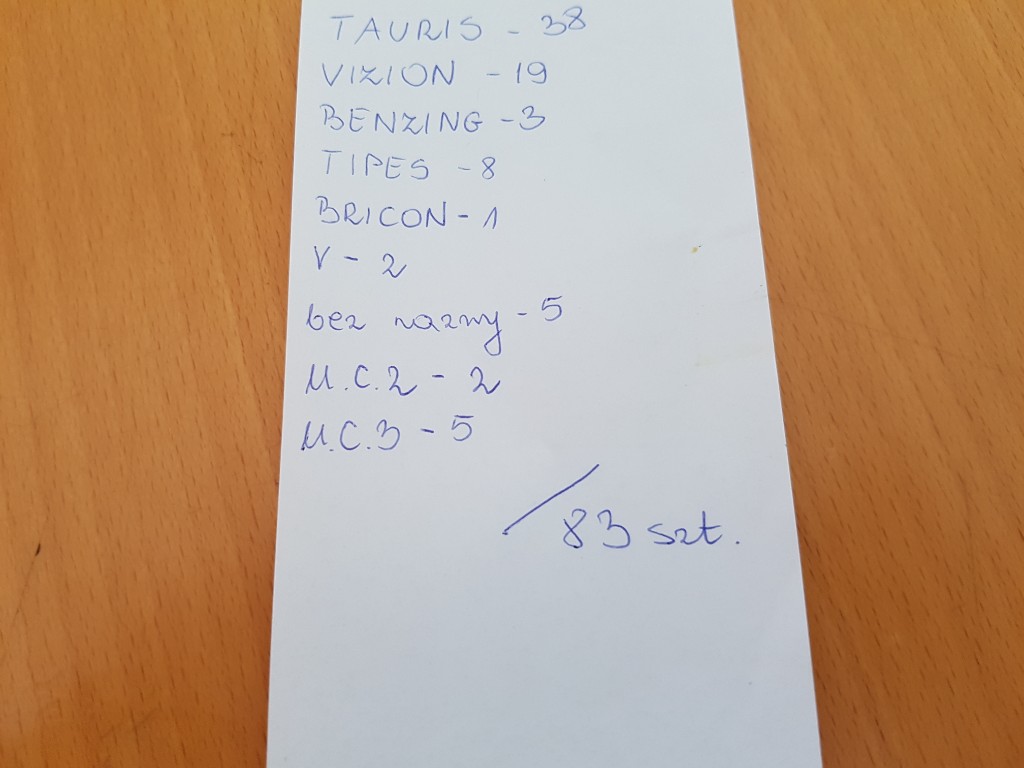 TAURIS - 38
VIZION - 19
BENZING - 3
TIPES - 8
BRICON - 1
V - 2
bez nazwy - 5
M.C.2 - 2
M.C.3 - 5
/ 83 szt.